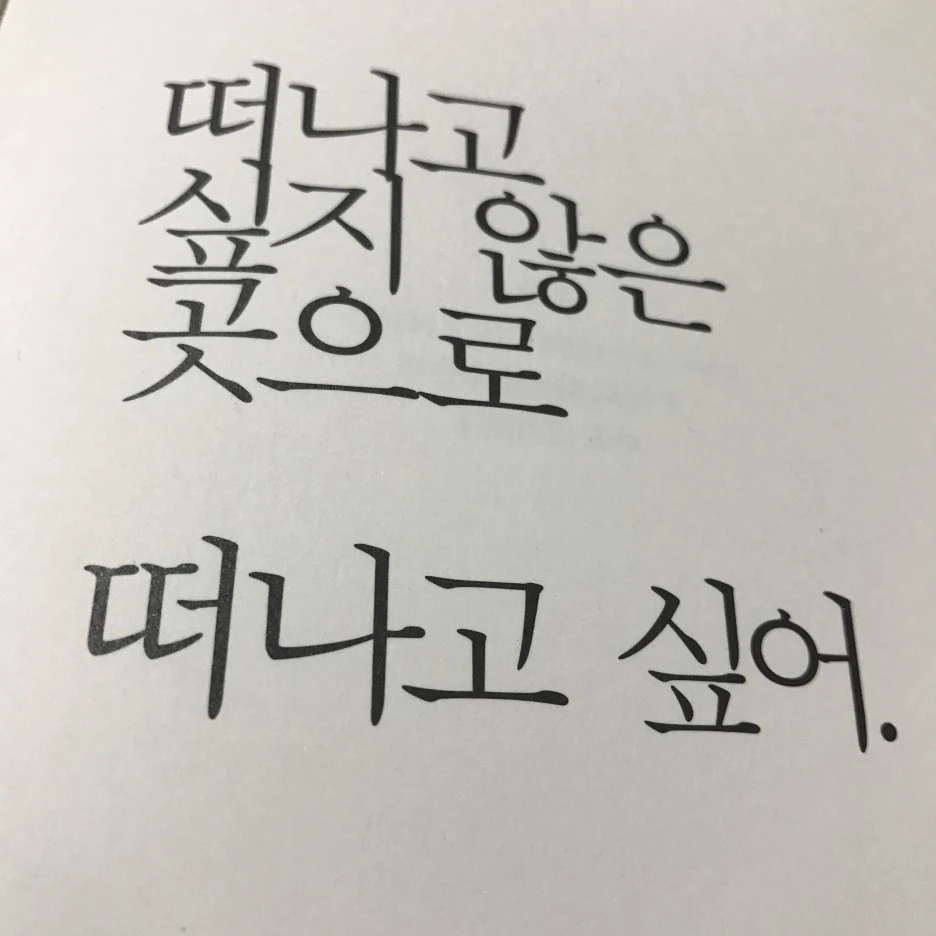 떠나고
싶지 않은
곳으로
떠나고 싶어.